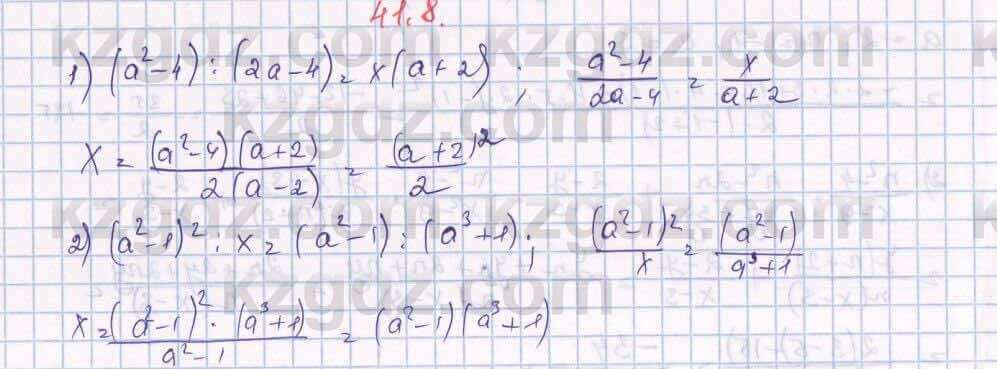 41.8.
1) (a²-4) : (2a-4) = x(a+2) ; (a²-4)/(2a-4) = x/(a+2)
X = (a²-4)(a+2)/2(a-2) = (a+2)²/2
2) (a²-1)² : x = (a²-1) : (a³+1) ; (a²-1)²/x = (a²-1)/(a³+1)
x = (a²-1)² · (a³+1)/(a²-1) = (a²-1)(a³+1)
kzgdz.com kzgdz.com
kzgdz.com kzgdz.com